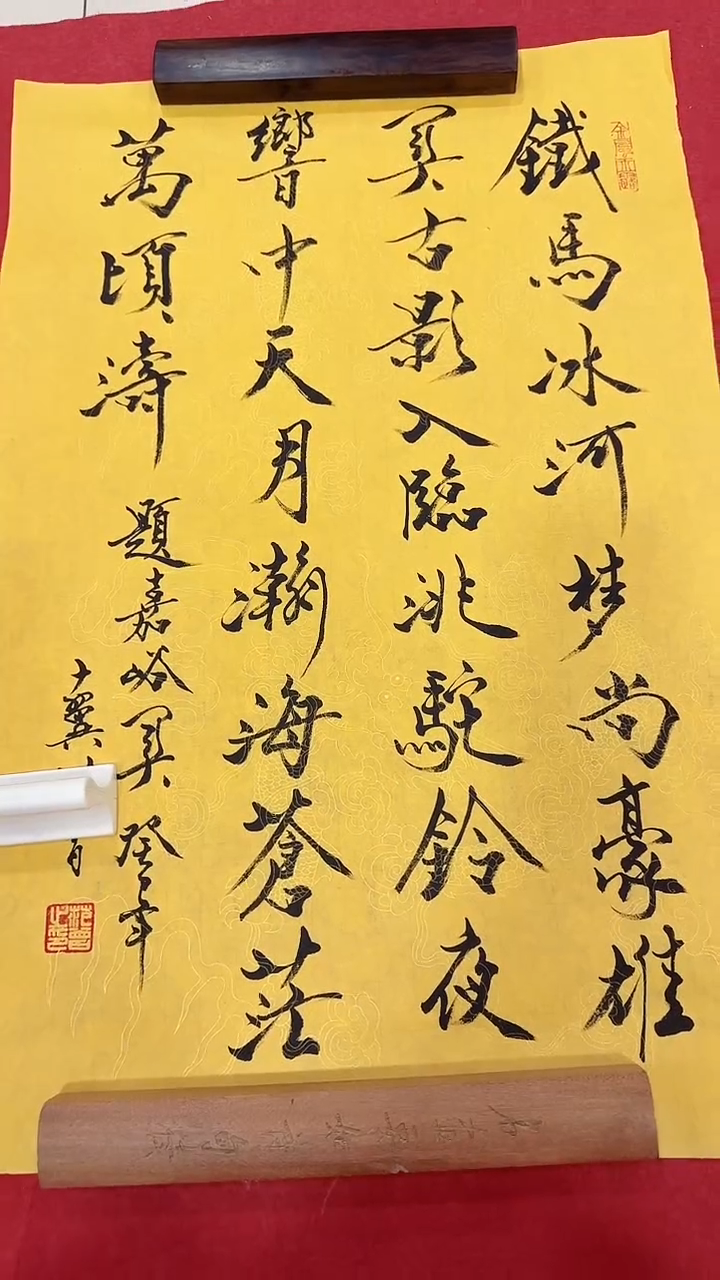 鐵馬冰河梦尚豪雄
関古影入臨洮駝鈴夜
響中天月瀚海蒼茫
萬頃濤 題嘉峪関 癸年
十翼